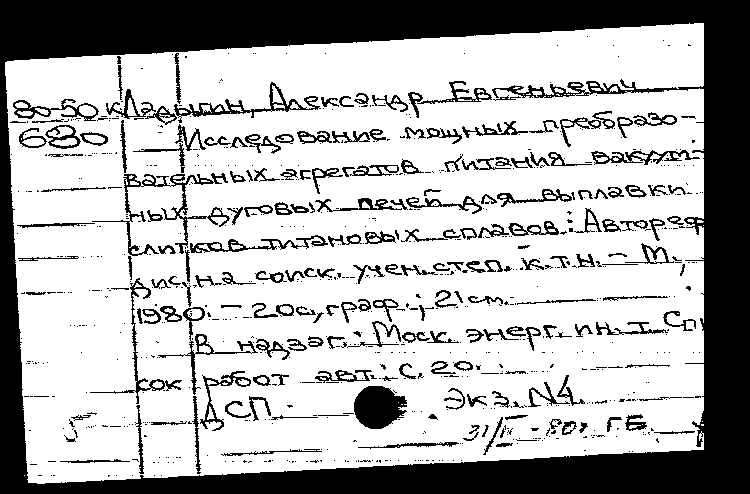 80-50к Ладыгин, Александр Евгеньевич
680 Исследование мощных преобразо-
вательных агрегатов питания вакуум-
ных дуговых печей для выплавки
слитков титановых сплавов: Автореф
дис. на соиск. учен. степ. к.т.н. - М.,
1980. - 20с., граф.; 21см.
В надзаг.: Моск. энерг. ин-т. Спи
сок работ авт.: с. 20.
ДСП. Экз. N4.
5 31/IV-80г ГБ.